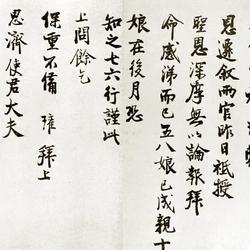 恩遷叙兩官昨日祗授
聖恩深厚無以論報拜
命感涕而已五八娘已成親十
娘在後月恐
知之七六行謹此
上問餘乞
保重不備 瓘 拜上
恩濟使君大夫